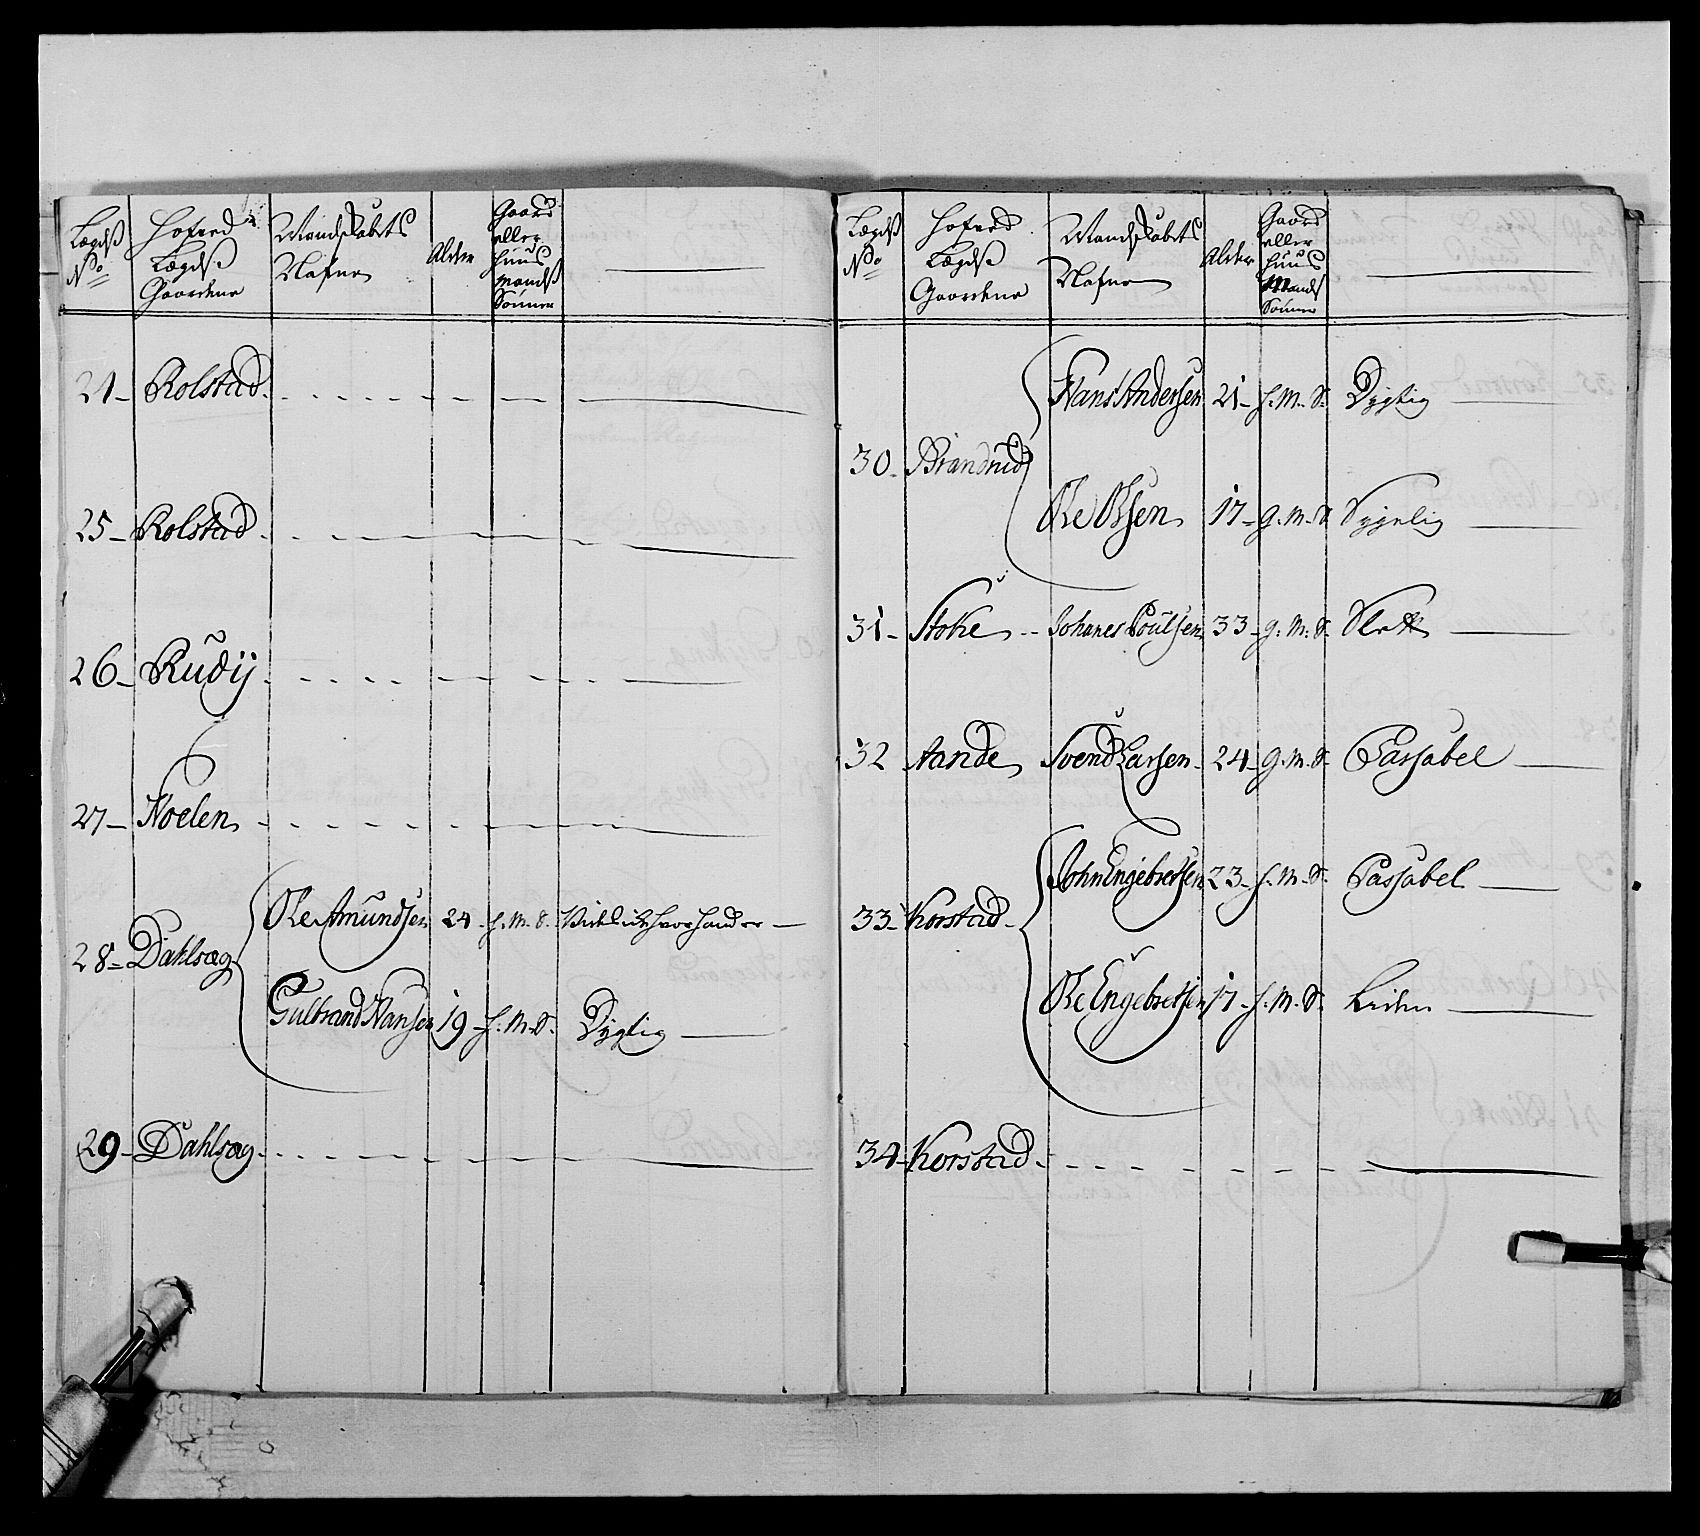 Lægds No
Hoved Lægds Gaardene
Mandskabets Nafne
Alder
Gaard eller Huus mands Sønner
24 - Rolstad.
25 - Rolstad
26 - Rudÿ
27 - Noelen
28 - Dahlsæg
Ole Amundsen 24 - H. M. S.
Gulbrand Hansen 19 - H. M. S. Dygtig
29 - Dahlsæg
Lægds No
Hofved Lægds Gaardene
Mandskabets Nafne
Alder
Gaard eller Huus Mands Sønner
30 - Brandrud
Hans Andersen 21 - H. M. S. Dygtig
Ole Olsen 17 - G. M. S Sygelig
31 - Stoke -- Johanes Poulsen 33 - G. M. S. Slet
32 Aande Svend Larsen - 24 - G. M. S. Passabel
33 - Korstad -
John Engebretsen 23 - H. M. S. Passabel
Ole Engebretsen 17 - H. M. S. Liden
34 - Korstad